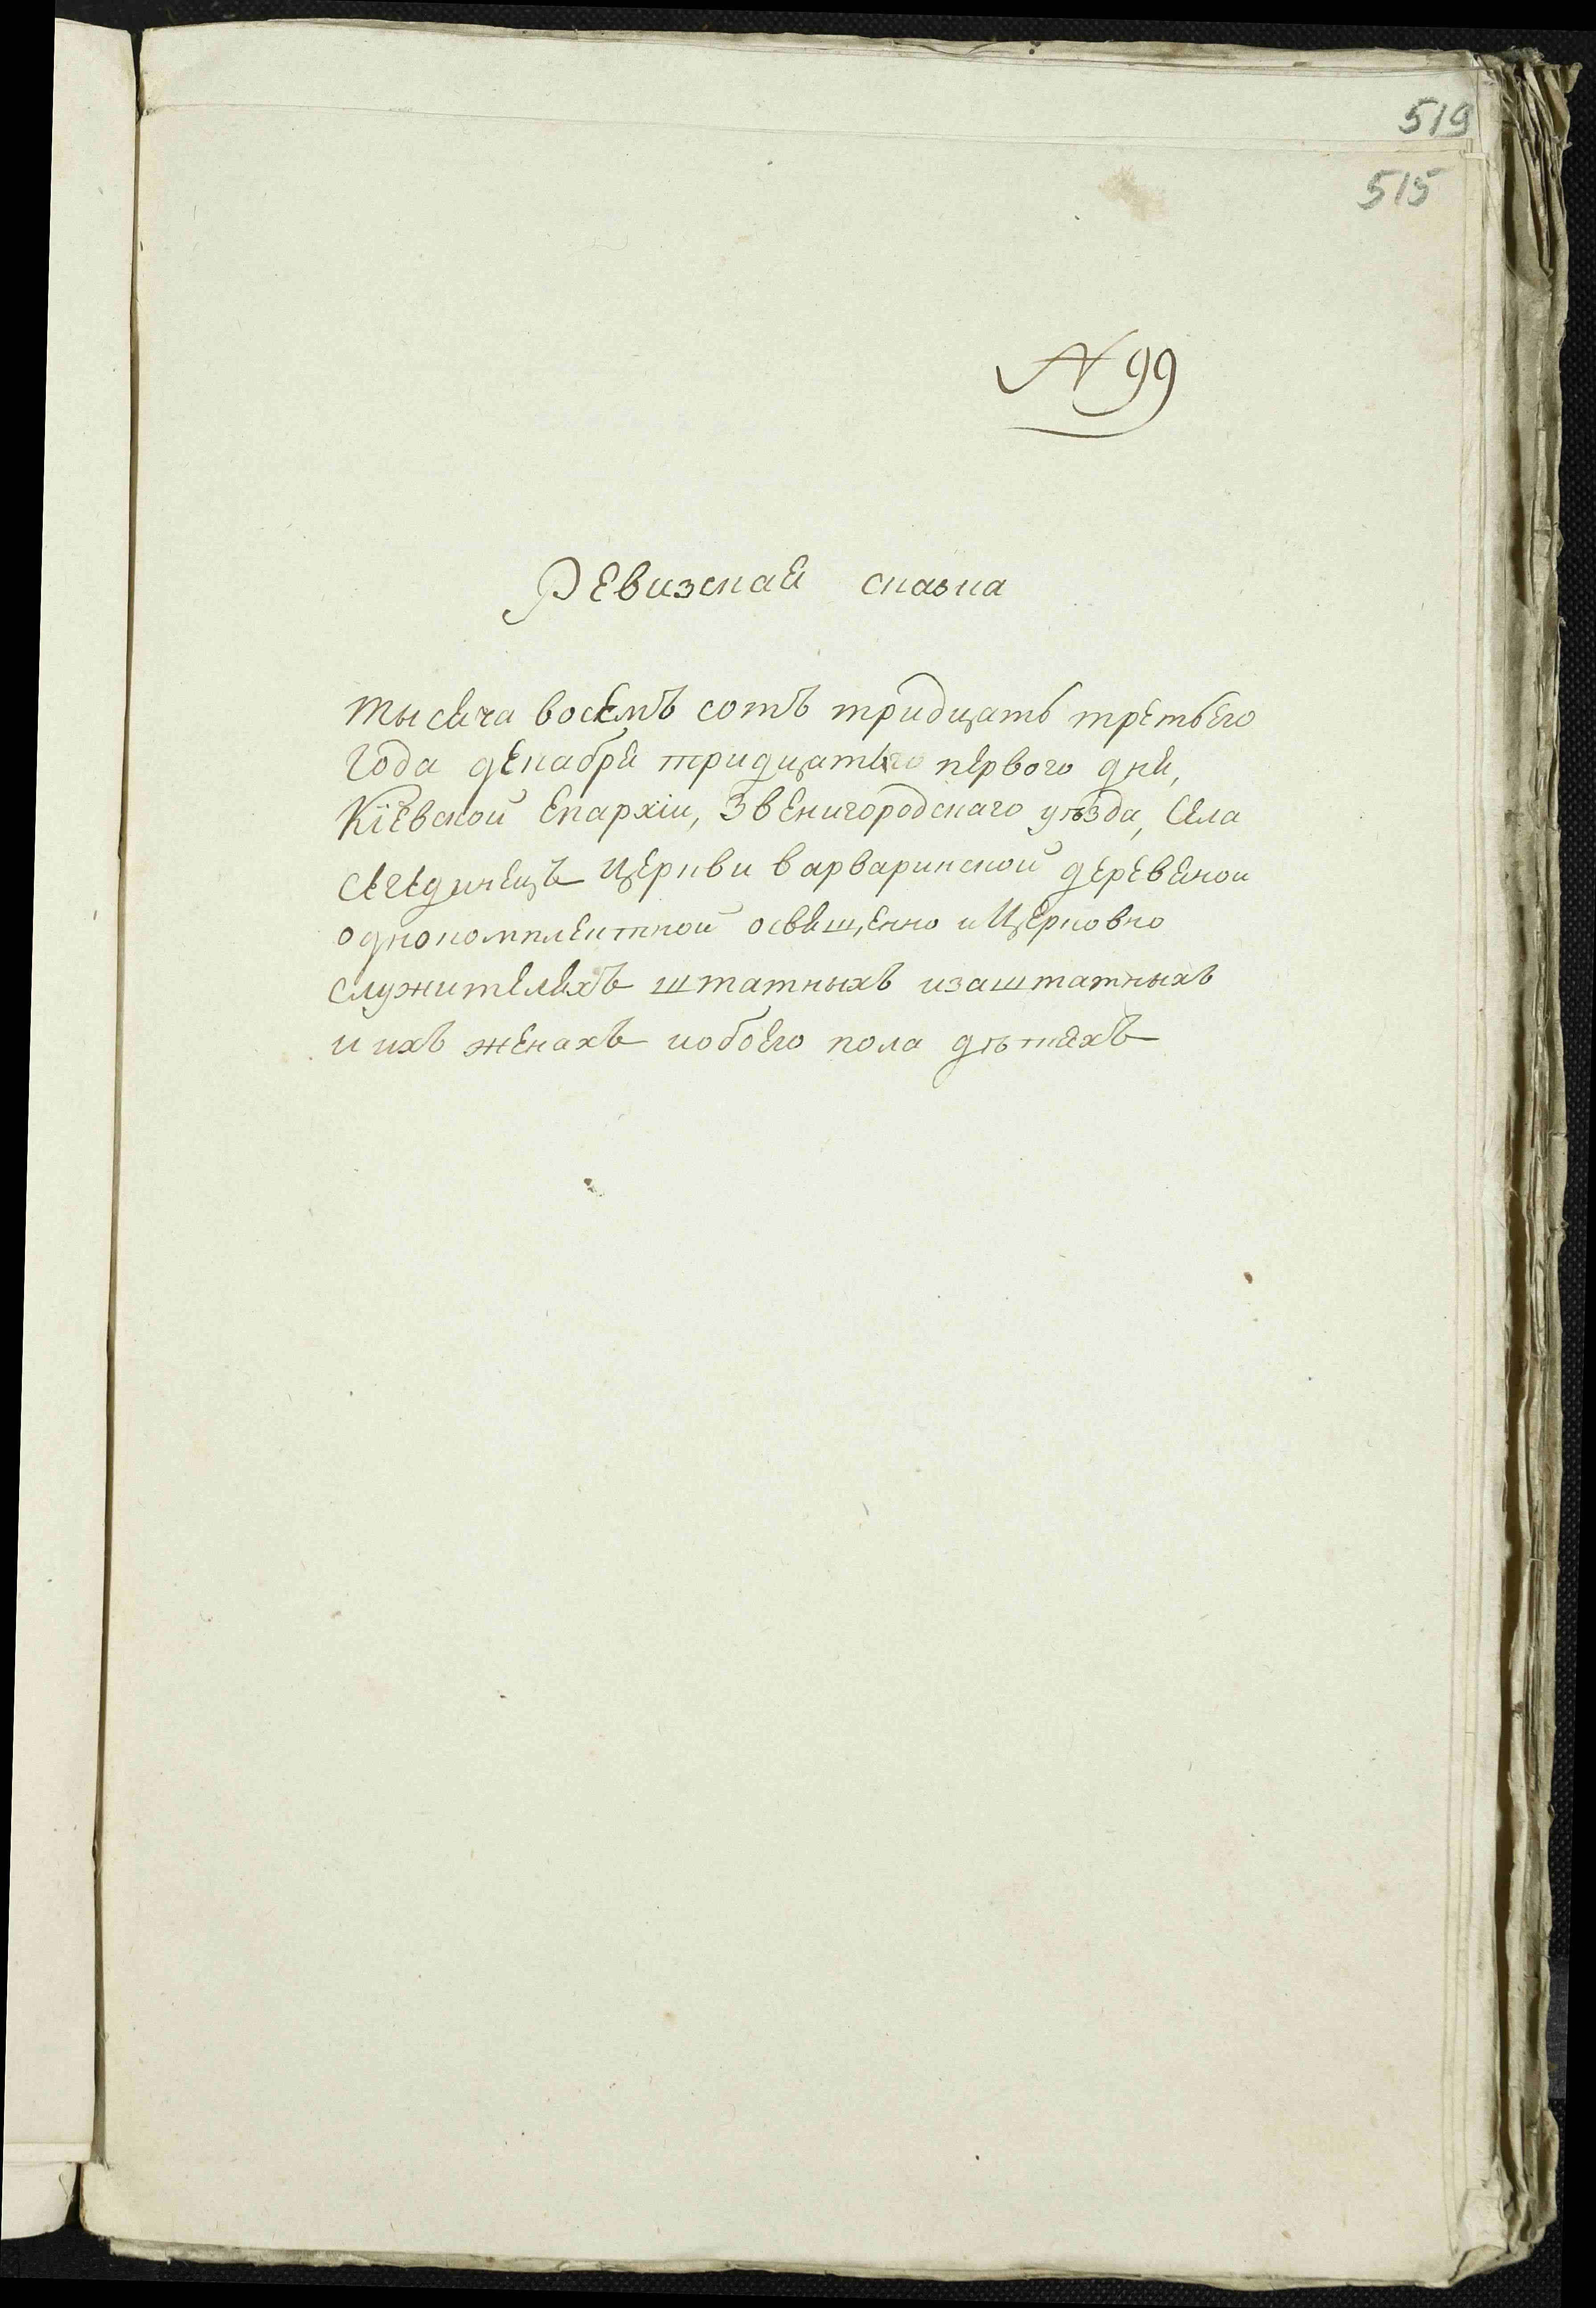 519
515
N 99
Ревизская сказка
тысяча восемъ сотъ тридцать третьего
года декабря тридцать первого дня,
Кіевской Епархіи, Звенигородскаго уѣзда, Села
Сегединецъ Церкви варваринской деревяной
однокомплектной освященно и Церковно
служителяхъ штатныхъ изаштатныхъ
и ихъ женахъ иобоего пола дѣтяхъ